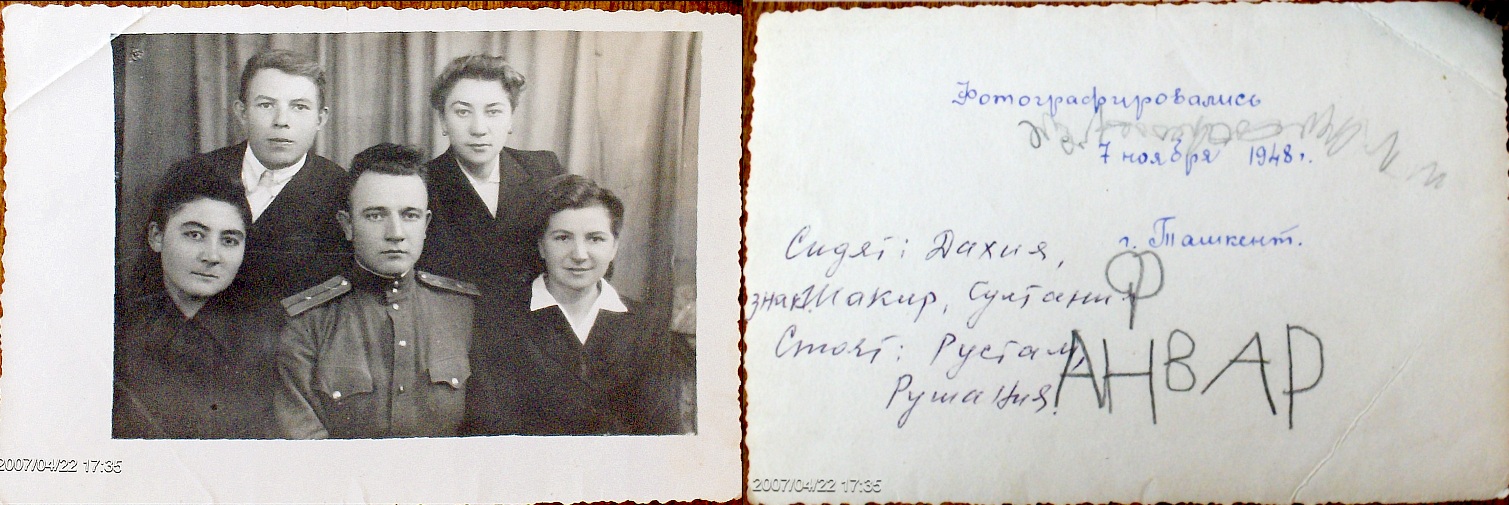 2007/04/22 17:35
Фотографировались
7 ноября 1948 г.
г. Ташкент.
Сидят: Дахия,
Шакир, Султания
Стоят: Рустам,
Рушания.
Ф
АНВАР
2007/04/22 17:35